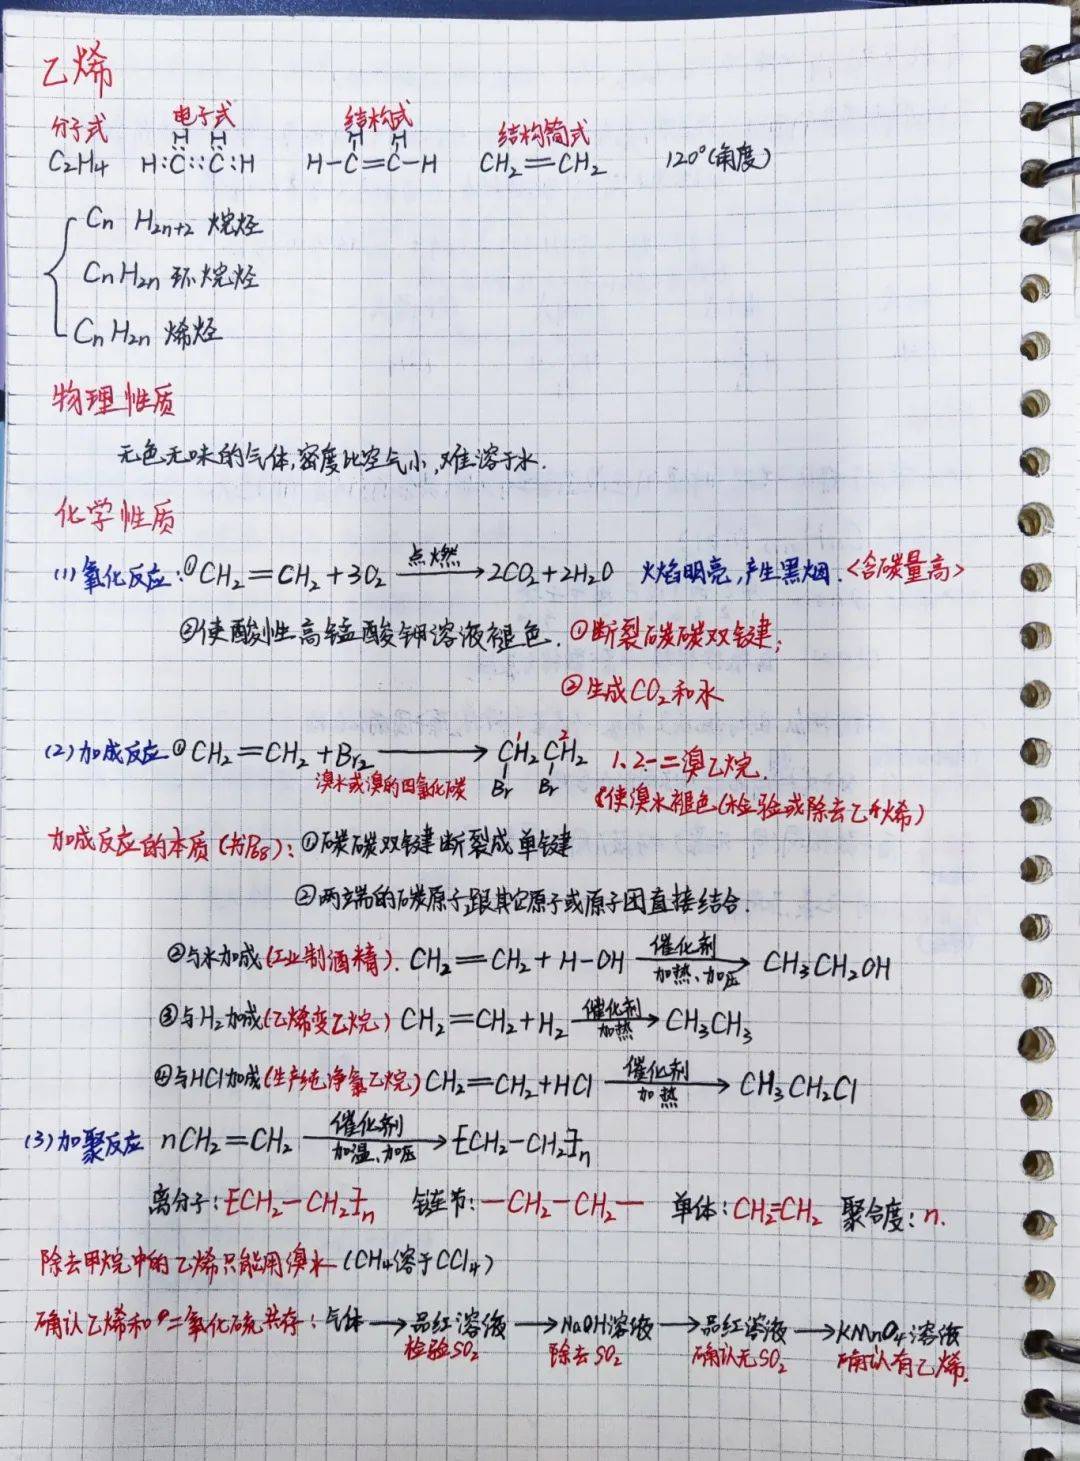 乙烯
分子式 电子式 结构式 结构简式
C2H4 H:C::C:H H-C=C-H CH2=CH2 120°(角度)
H H H H
Cn H2n+2 烷烃
CnH2n 环烷烃
CnH2n 烯烃
物理性质
无色无味的气体,密度比空气小,难溶于水.
化学性质
(1)氧化反应:①CH2=CH2+3O2 点燃→2CO2+2H2O 火焰明亮,产生黑烟.<含碳量高>
②使酸性高锰酸钾溶液褪色. ①断裂碳碳双键;
②生成CO2和水
(2)加成反应①CH2=CH2+Br2 → CH2CH2 1、2-二溴乙烷.
1 2
溴水或溴的四氯化碳 Br Br
使溴水褪色(检验或除去乙烯)
加成反应的本质(书P68):①碳碳双键断裂成单键
②两端的碳原子跟其它原子或原子团直接结合.
②与水加成(工业制酒精). CH2=CH2+H-OH 催化剂 加热、加压→CH3CH2OH
③与H2加成(乙烯变乙烷) CH2=CH2+H2 催化剂 加热→CH3CH3
④与HCl加成(生产纯净氯乙烷)CH2=CH2+HCl 催化剂 加热→CH3CH2Cl
(3)加聚反应 nCH2=CH2 催化剂 加温、加压→[CH2-CH2]n
离分子:[CH2-CH2]n 链节:-CH2-CH2- 单体:CH2=CH2 聚合度:n.
除去甲烷中的乙烯只能用溴水(CH4溶于CCl4)
确认乙烯和二氧化硫共存:气体→品红溶液→NaOH溶液→品红溶液→KMnO4溶液
检验SO2 除去SO2 确认无SO2 确认有乙烯.